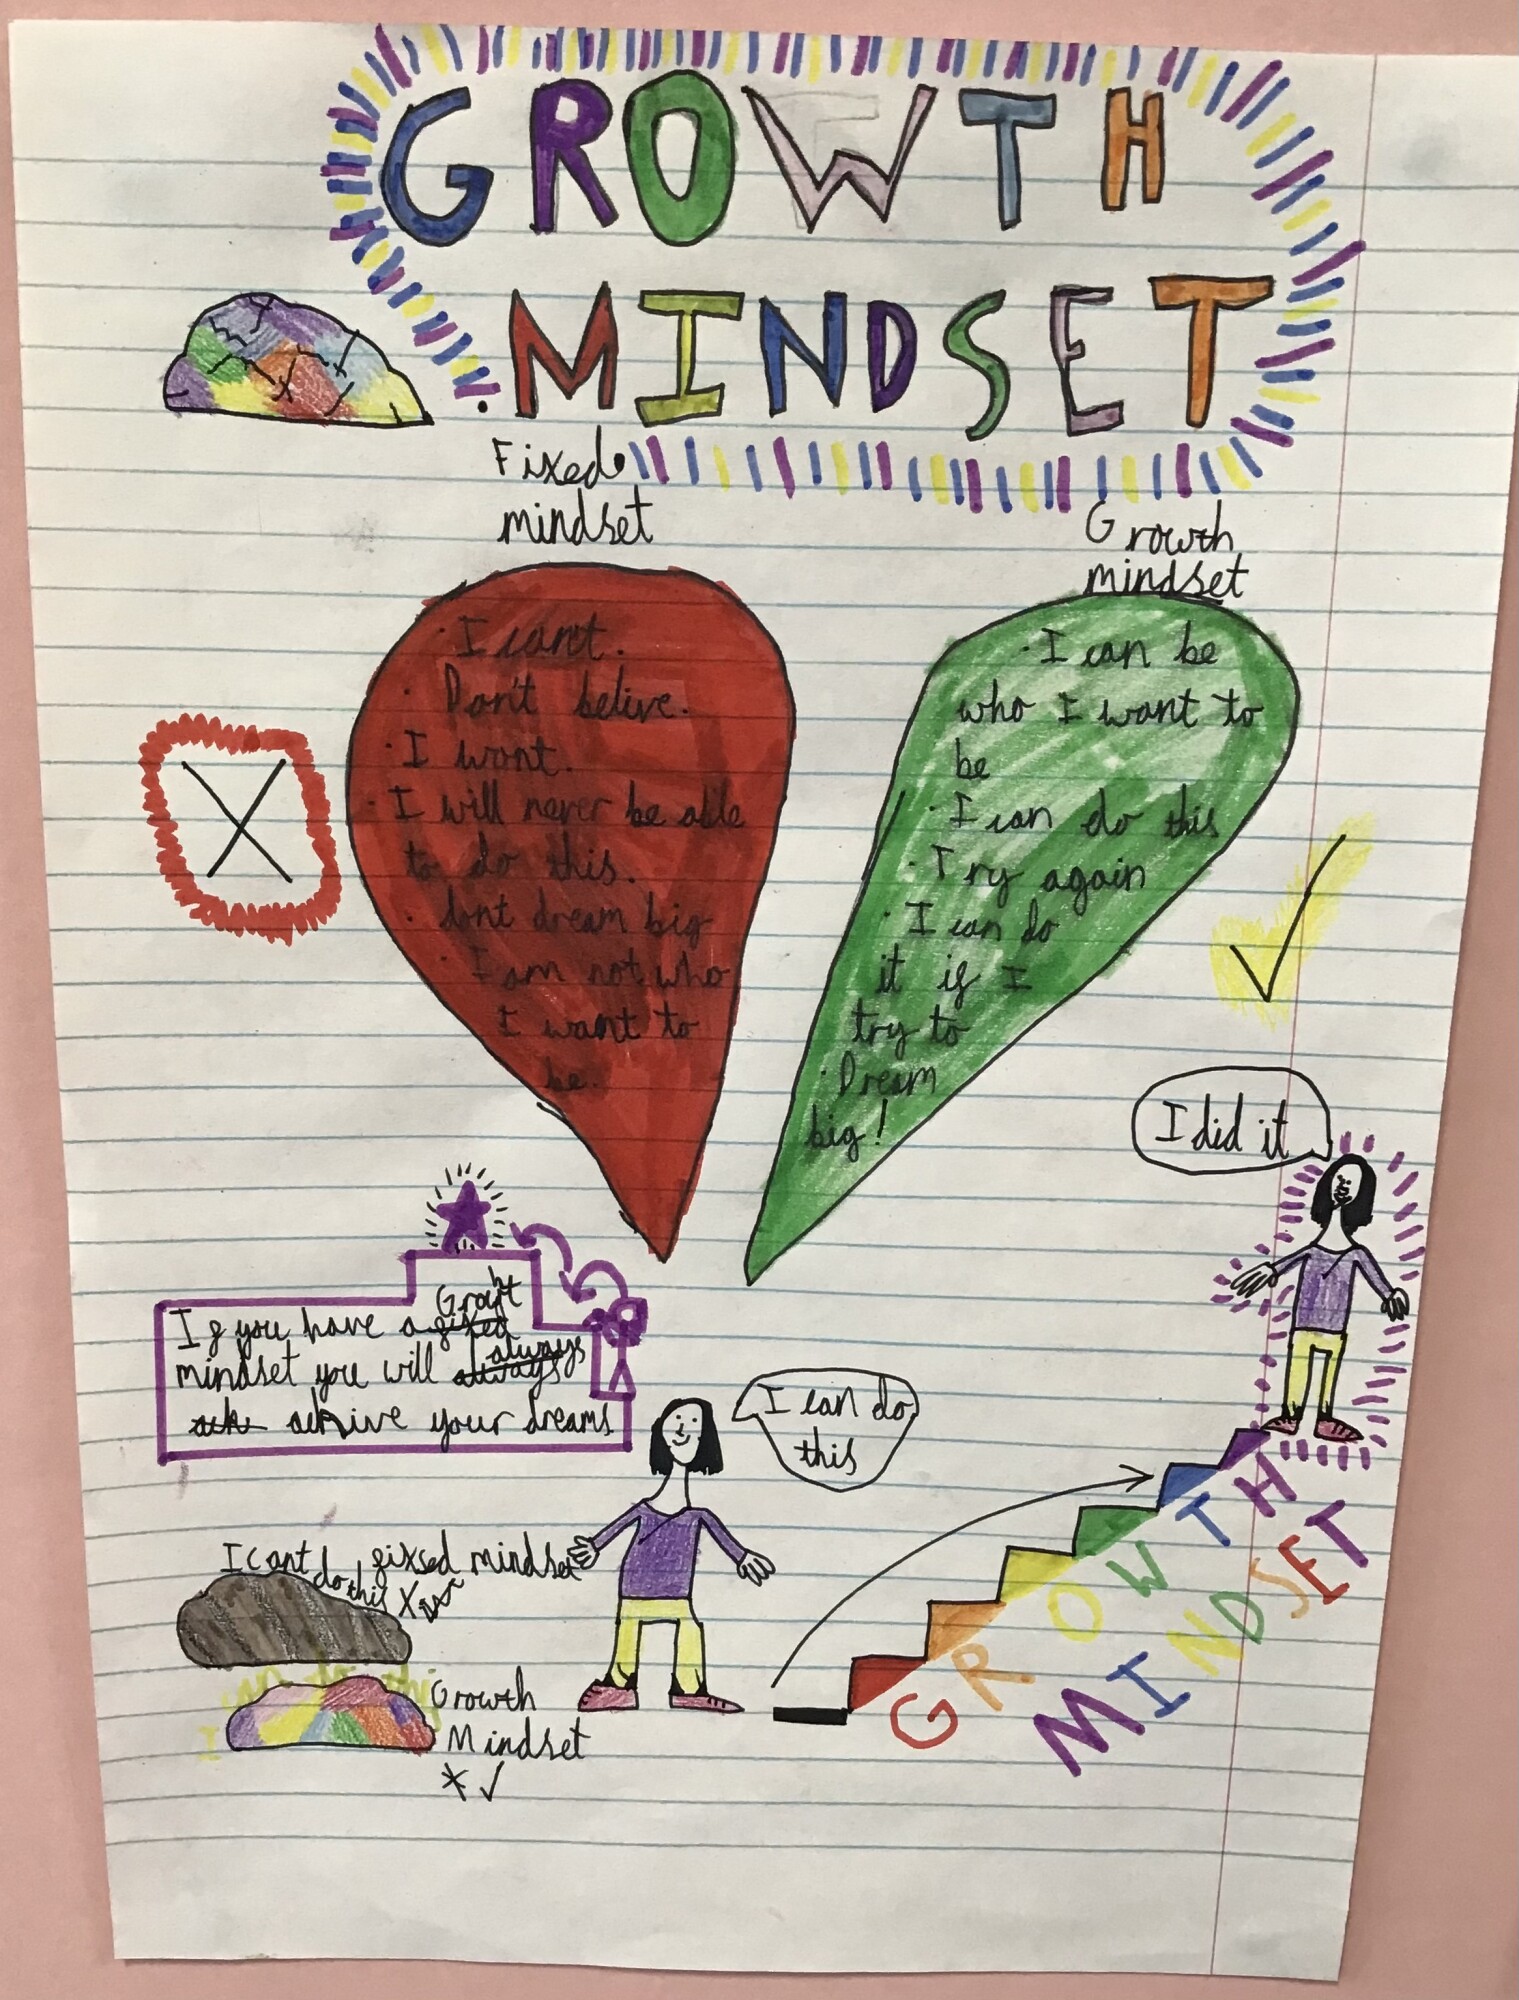 GROWTH
MINDSET
Fixed
mindset
Growth
mindset
· I can't.
· Don't belive.
· I wont.
· I will never be able
to do this.
· dont dream big
· I am not who
I want to
be.
· I can be
who I want to
be
· I can do this
· Try again
· I can do
it if I
try to
· Dream
big!
I did it
If you have a Growht
mindset you will always
achive your dreams
I can do
this
I cant do this X
fixsed mindset
Growth
Mindset
GROWTH
MINDSET